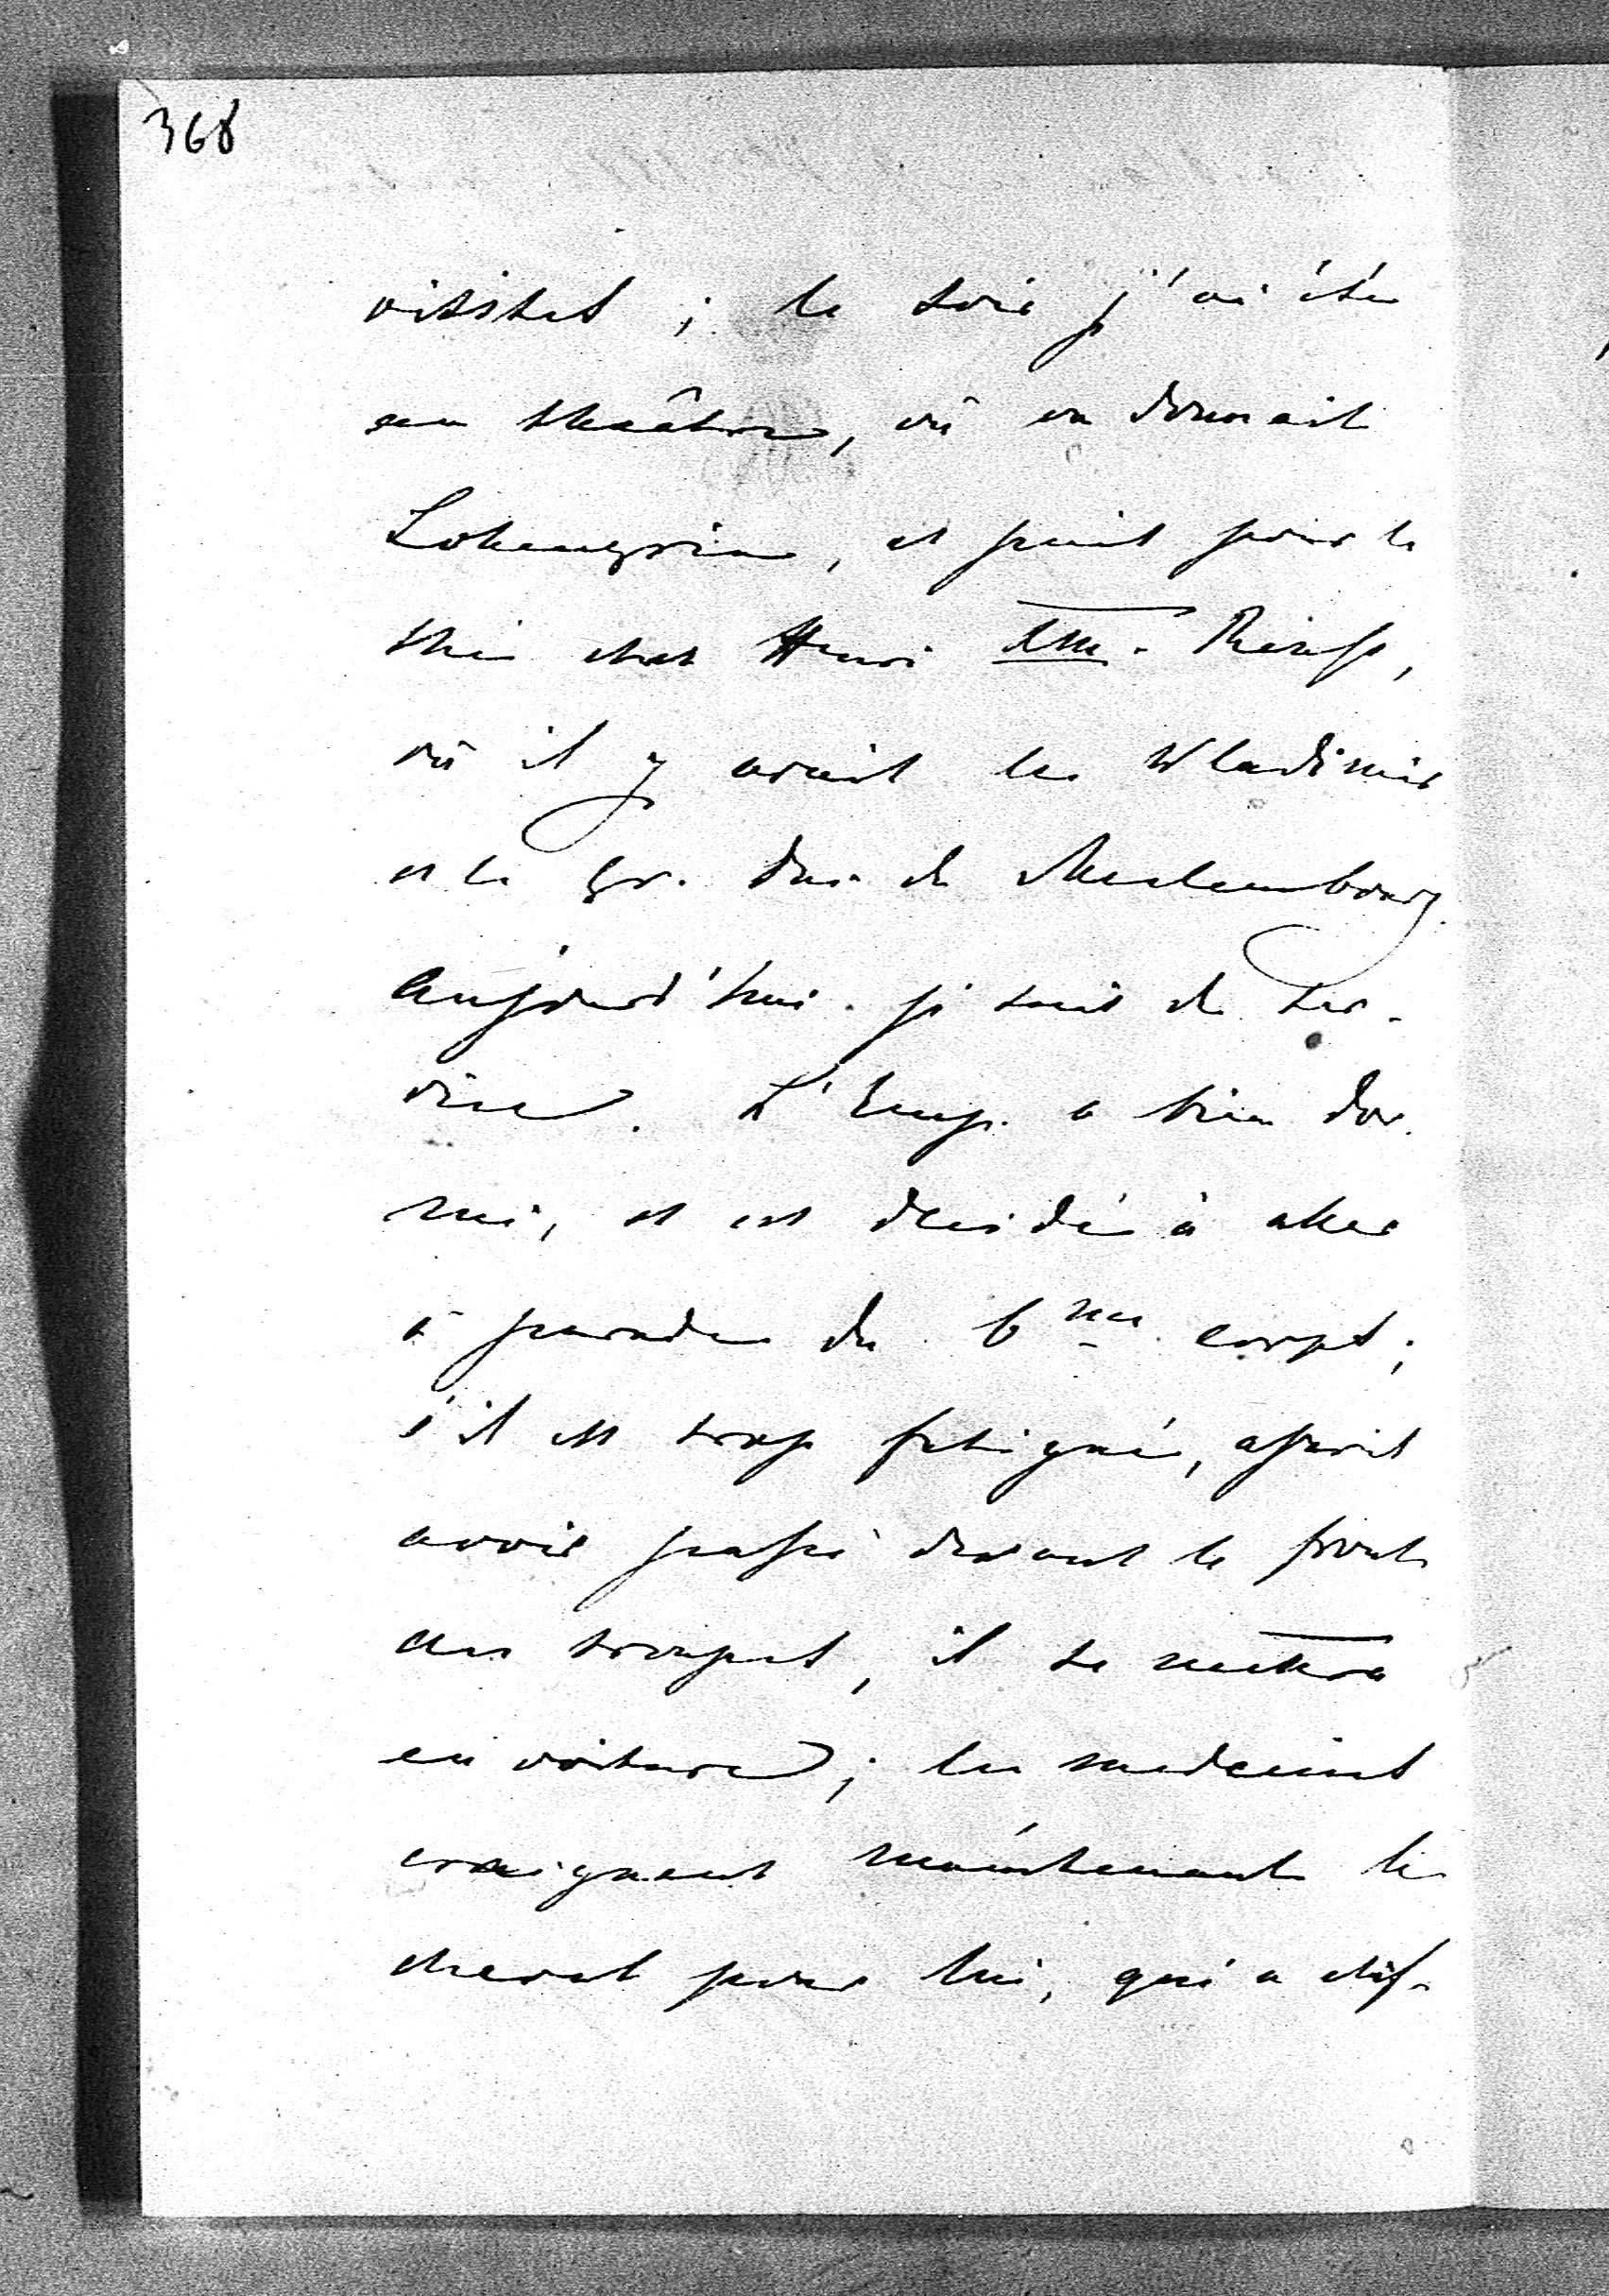 368
visites ; le soir j'ai été
au théâtre, où on donnait
Lohengrin, et puis pour le
thé chez Henri XIII. Reuss,
où il y avait les Wladimir
et le gr. duc de Meclembourg.
Aujourd'hui je suis de ser-
vice. L'Emp. a bien dor-
mi, et est décidé à aller
à parade du 6me corps ;
s'il est trop fatigué, après
avoir passé devant le front
des troupes, il se mettra
en voiture ; les medecins
craignent maintenant le
cheval pour lui, qui a